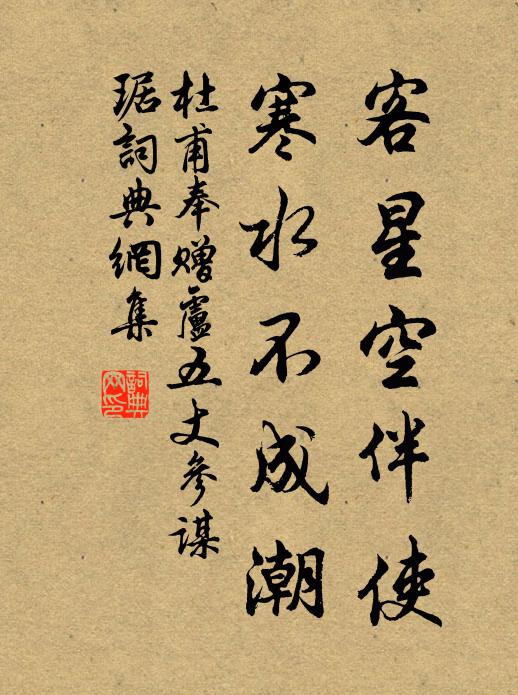 客星空伴使
寒水不成潮
杜甫奉贈盧五丈參謀
琚詞典網集
詞典
网印